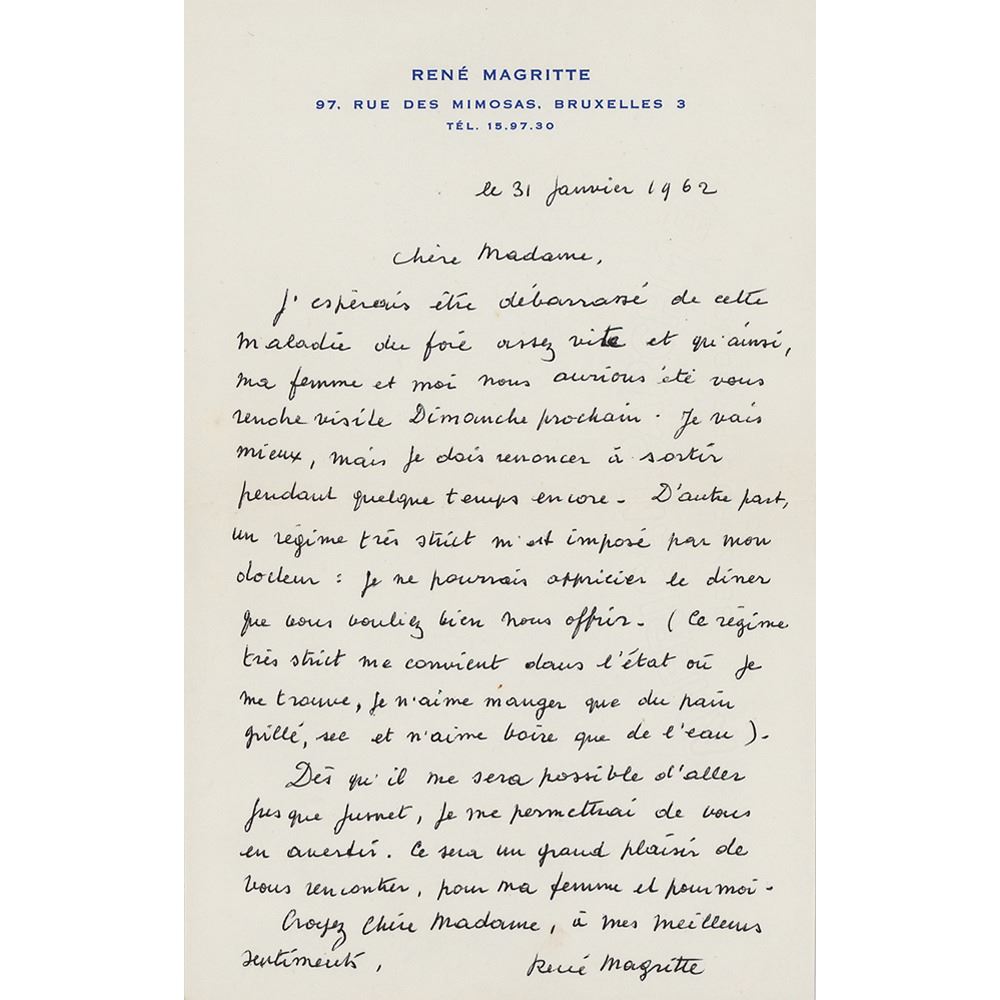 RENÉ MAGRITTE
97, RUE DES MIMOSAS, BRUXELLES 3
TÉL. 15.97.30
le 31 Janvier 1962
Chère Madame,
J'espérais être débarrassé de cette
maladie du foie assez vite et qu'ainsi,
ma femme et moi nous aurions été vous
rendre visite Dimanche prochain. Je vais
mieux, mais je dois renoncer à sortir
pendant quelque temps encore. D'autre part,
un régime très strict m'est imposé par mon
docteur : je ne pourrais apprécier le dîner
que vous vouliez bien nous offrir. (Ce régime
très strict me convient dans l'état où je
me trouve, je n'aime manger que du pain
grillé, sec et n'aime boire que de l'eau).
Dès qu'il me sera possible d'aller
jusque Jumet, je me permettrai de vous
en avertir. Ce sera un grand plaisir de
vous rencontrer, pour ma femme et pour moi.
Croyez Chère Madame, à mes meilleurs
sentiments,
René Magritte